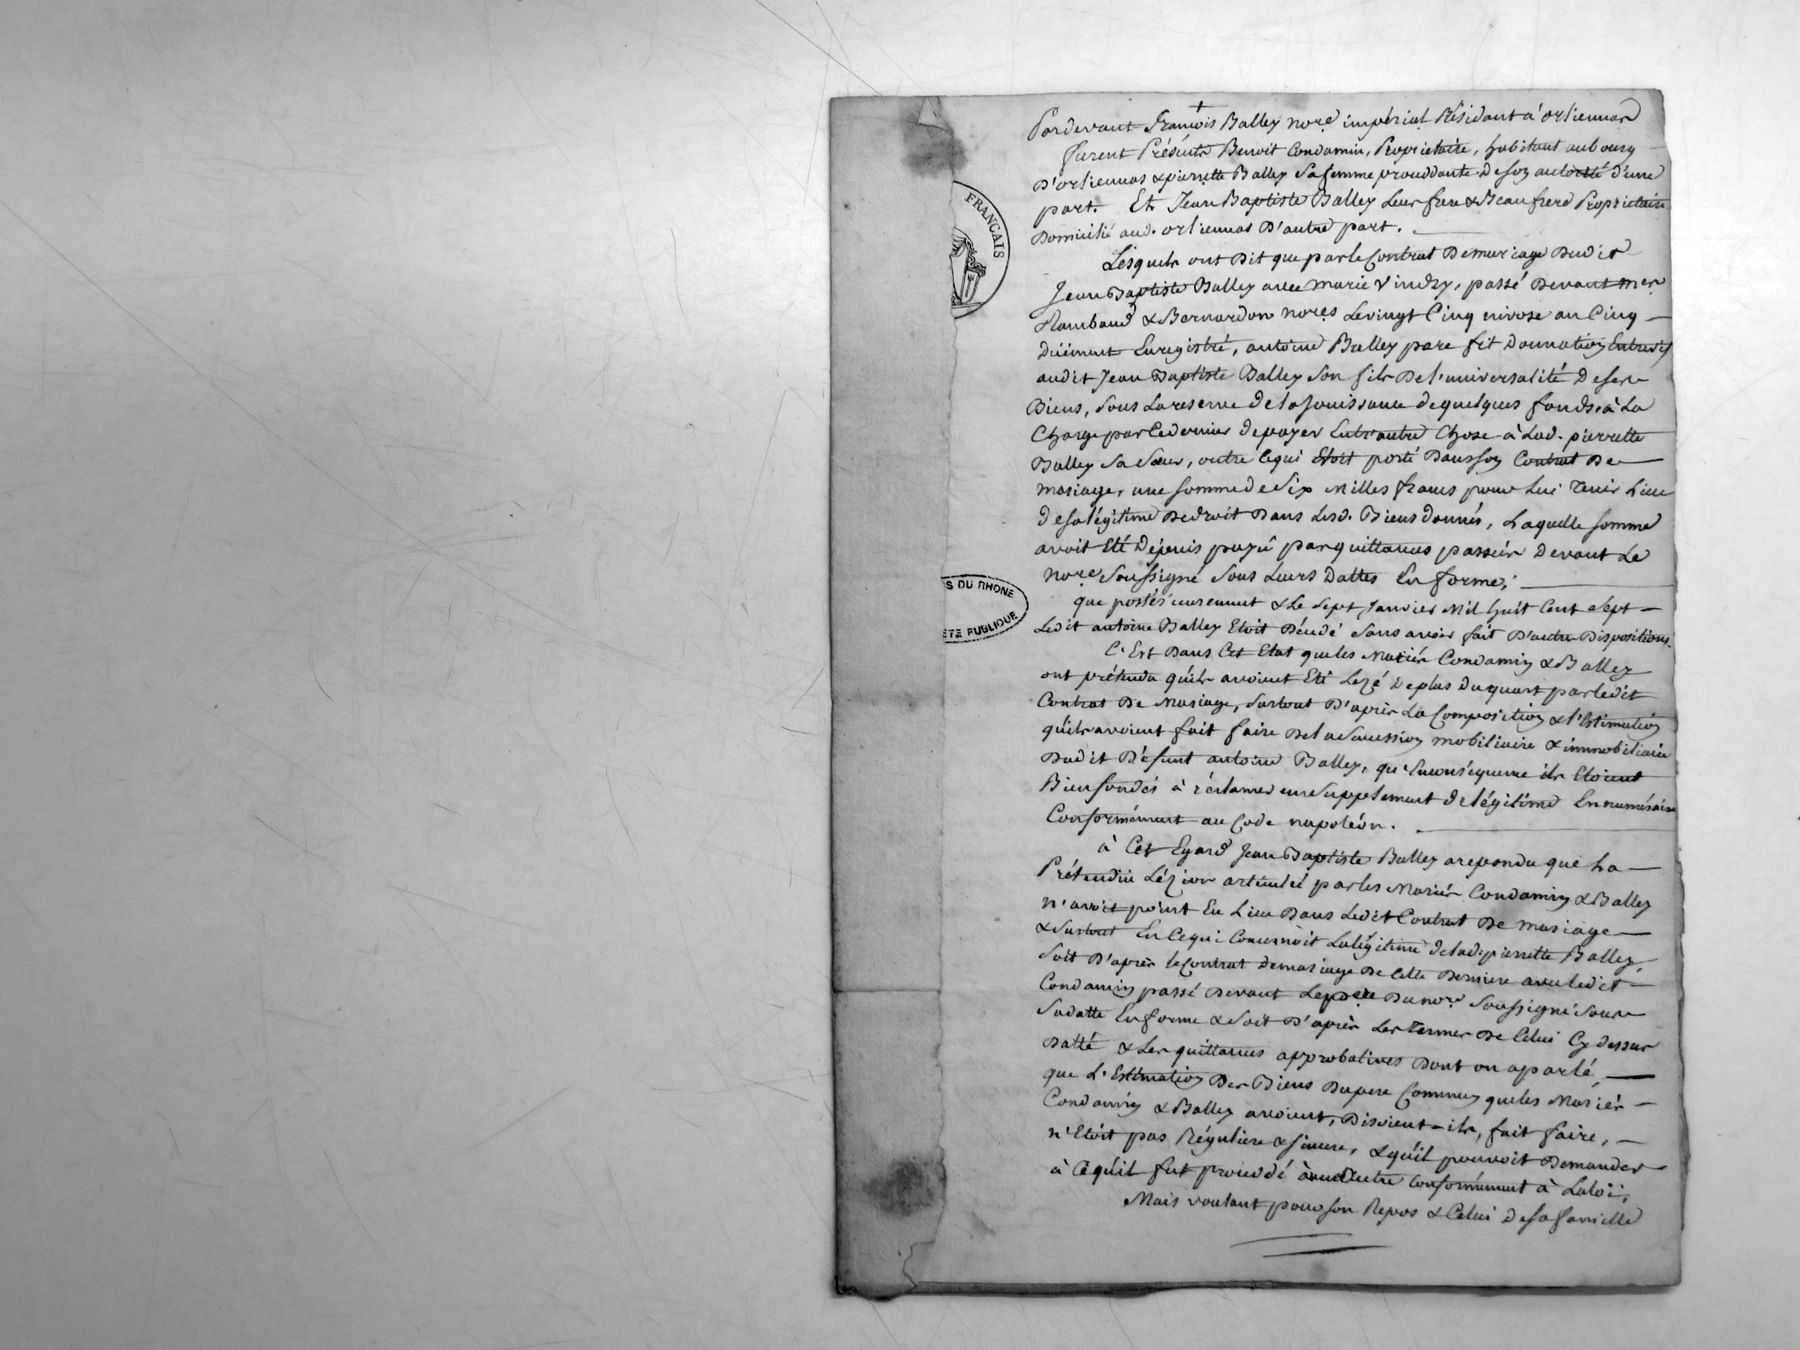 Pardevant françois Balley no.re impérial Résidant à orliennas
furent Présents Benoit Condamin, Propriétaire, habitant au bourg
D'orliennas & pierrette Balley Sa femme procédante de son autorité d'une
part. Et Jean Baptiste Balley Leur frere & Beaufrere Propriétaire
Domicilié aud. orliennas D'autre part.
Lesquels ont Dit que par le Contrat De mariage Dudit
Jean Baptiste Balley avec marie Vindry, passé Devant Mes
Rambaud & Bernardon no.res Le vingt Cinq nivose an Cinq
Duëment Enregistré, antoine Balley pere fit Donnation Entrevifs
audit Jean Baptiste Balley Son fils De l'universalité de ses
Biens, Sous La reserve de la Jouissance de quelques fonds, à La
Charge par Ce dernier de payer Entr'autre Chose à Lad. pierrette
Balley Sa Sœur, outre Ce qui Etoit porté Dans son Contrat De
mariage, une somme de Six Milles francs pour Lui Tenir Lieu
de sa légitime De droit Dans Lesd. Biens donnés, Laquelle somme
avoit Eté Depuis payée par quittances passées devant Le
no.re Soussigné Sous Leurs Dattes En forme;
que postérieurement & Le Sept Janvier Mil huit Cent Sept
Ledit antoine Balley Etoit Décédé Sans avoir fait D'autre Dispositions.
C'Est Dans Cet Etat que les Mariés Condamin & Balley
ont prétendu qu'ils avoient Eté Lezé De plus Du quart par ledit
Contrat De Mariage, Surtout D'après La Composition & l'Estimation
qu'ils avoient fait faire De la Succession mobiliaire & immobiliaire
Dudit Défunt antoine Balley, qu'En conséquence ils Etoient
Bien fondés à réclamer un Supplement de légitime En numéraire
Conformément au Code napoléon.
à Cet Egard Jean Baptiste Balley a repondu que La
Prétendüe Lézion articulée par les Mariés Condamin & Balley
n'avoit point Eu Lieu Dans Ledit Contrat De mariage
& Surtout En Ce qui Concernoit La légitime de lad. pierrette Balley,
Soit D'après le Contrat De mariage De Cette Derniere avec ledit
Condamin passé Devant Le pere Du no.re Soussigné Sous
Sa datte En forme & Soit D'après Les Termes De Celui Cy dessus
Datté & Les quittances approbatives Dont on a parlé,
que L'Estimation Des Biens Du pere Commun que les Mariés
Condamin & Balley avoient, Disoient-ils, fait faire,
n'Etoit pas Réguliere & sincere, & qu'il pouvoit Demander
à Ce qu'il fut procédé à une autre Conformément à La loi;
Mais voulant pour son Repos & Celui de sa famille
FRANÇAIS
S DU RHONE
ÉTÉ PUBLIQUE